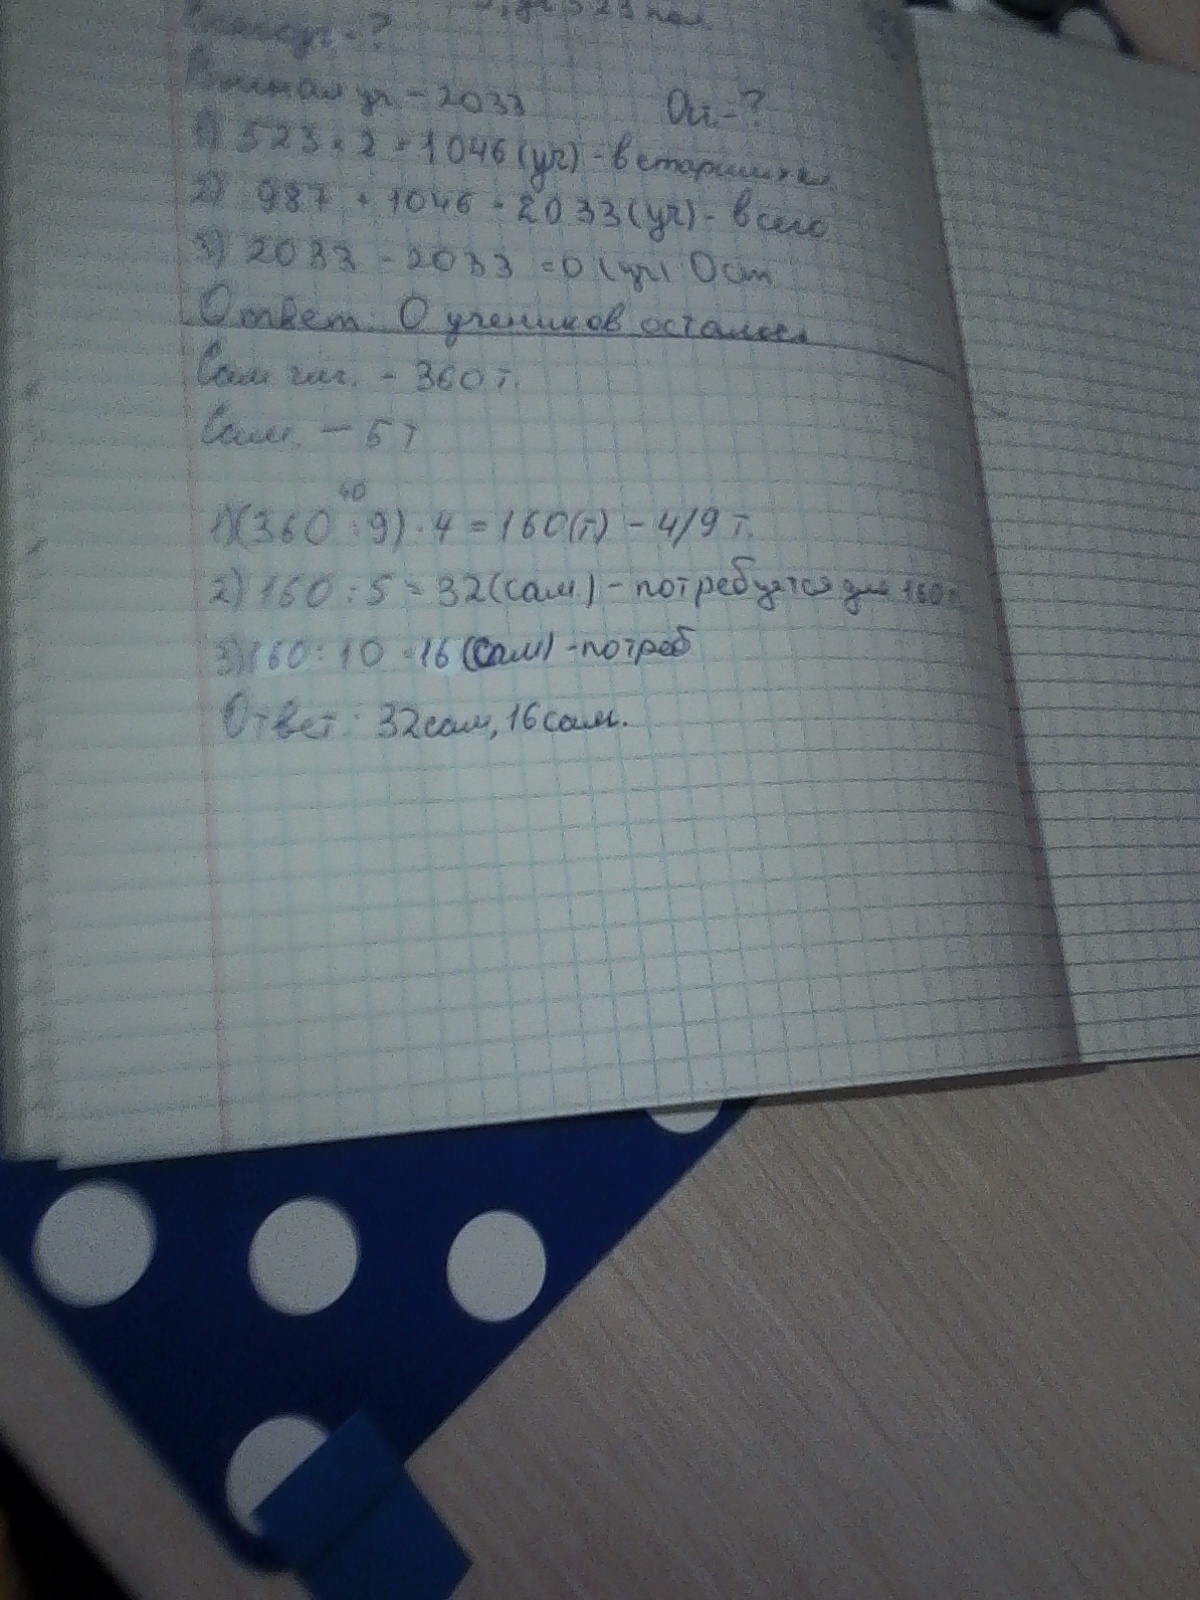 523 пол
- ?
уч - 2033 Ост. - ?
1) 523 × 2 = 1046 (уч) - в старших кл
2) 987 + 1046 = 2033 (уч) - всего
3) 2033 - 2033 = 0 (уч) Ост
Ответ: 0 учеников осталось
Сам - 360 т.
Сам. - 5 т
40
1) (360 : 9) · 4 = 160 (т) - 4/9 т.
2) 160 : 5 = 32 (сам.) - потребуется для 160 т
3) 160 : 10 = 16 (сам) - потреб
Ответ: 32 сам, 16 сам.